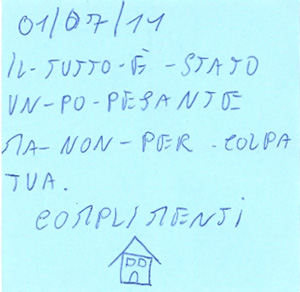 01/07/11
IL-TUTTO-È-STATO
UN-PO-PESANTE
MA-NON-PER-COLPA
TUA.
COMPLIMENTI